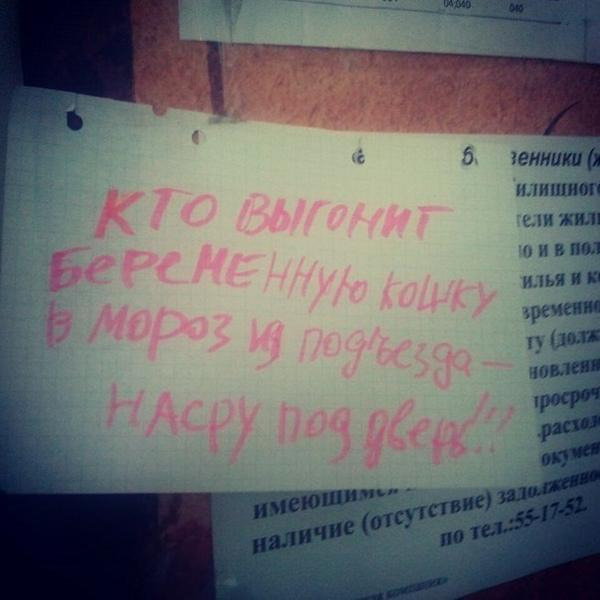 04,040 040
КТО ВЫГОНИТ
БЕРЕМЕННУЮ КОШКУ
В МОРОЗ ИЗ ПОДЪЕЗДА —
НАСРУ ПОД ДВЕРЬ!!!
б.
венники (ж
илищного
ели жил
ю и в пол
илья и к
временно
ту (долж
новленн
просроч
расхо
окумен
имеющимся
наличие (отсутствие) задолженнос
по тел.:55-17-52.
компания»